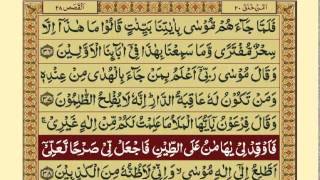 اَمَّنْ خَلَقَ ٢٠ اَلْقَصَص ٢٨
فَلَمَّا جَآءَهُمْ مُّوْسٰى بِاٰيٰتِنَا بَيِّنٰتٍ قَالُوْا مَا هٰذَآ اِلَّا
سِحْرٌ مُّفْتَرًى وَّمَا سَمِعْنَا بِهٰذَا فِيْٓ اٰبَآئِنَا الْاَوَّلِيْنَ ٣٦
وَقَالَ مُوْسٰى رَبِّيْٓ اَعْلَمُ بِمَنْ جَآءَ بِالْهُدٰى مِنْ عِنْدِهٖ
وَمَنْ تَكُوْنُ لَهٗ عَاقِبَةُ الدَّارِ اِنَّهٗ لَا يُفْلِحُ الظّٰلِمُوْنَ ٣٧
وَقَالَ فِرْعَوْنُ يٰٓاَيُّهَا الْمَلَاُ مَا عَلِمْتُ لَكُمْ مِّنْ اِلٰهٍ غَيْرِيْ
فَاَوْقِدْ لِيْ يٰهَامٰنُ عَلَى الطِّيْنِ فَاجْعَلْ لِّيْ صَرْحًا لَّعَلِّيْٓ
اَطَّلِعُ اِلٰٓى اِلٰهِ مُوْسٰى وَاِنِّيْ لَاَظُنُّهٗ مِنَ الْكٰذِبِيْنَ ٣٨